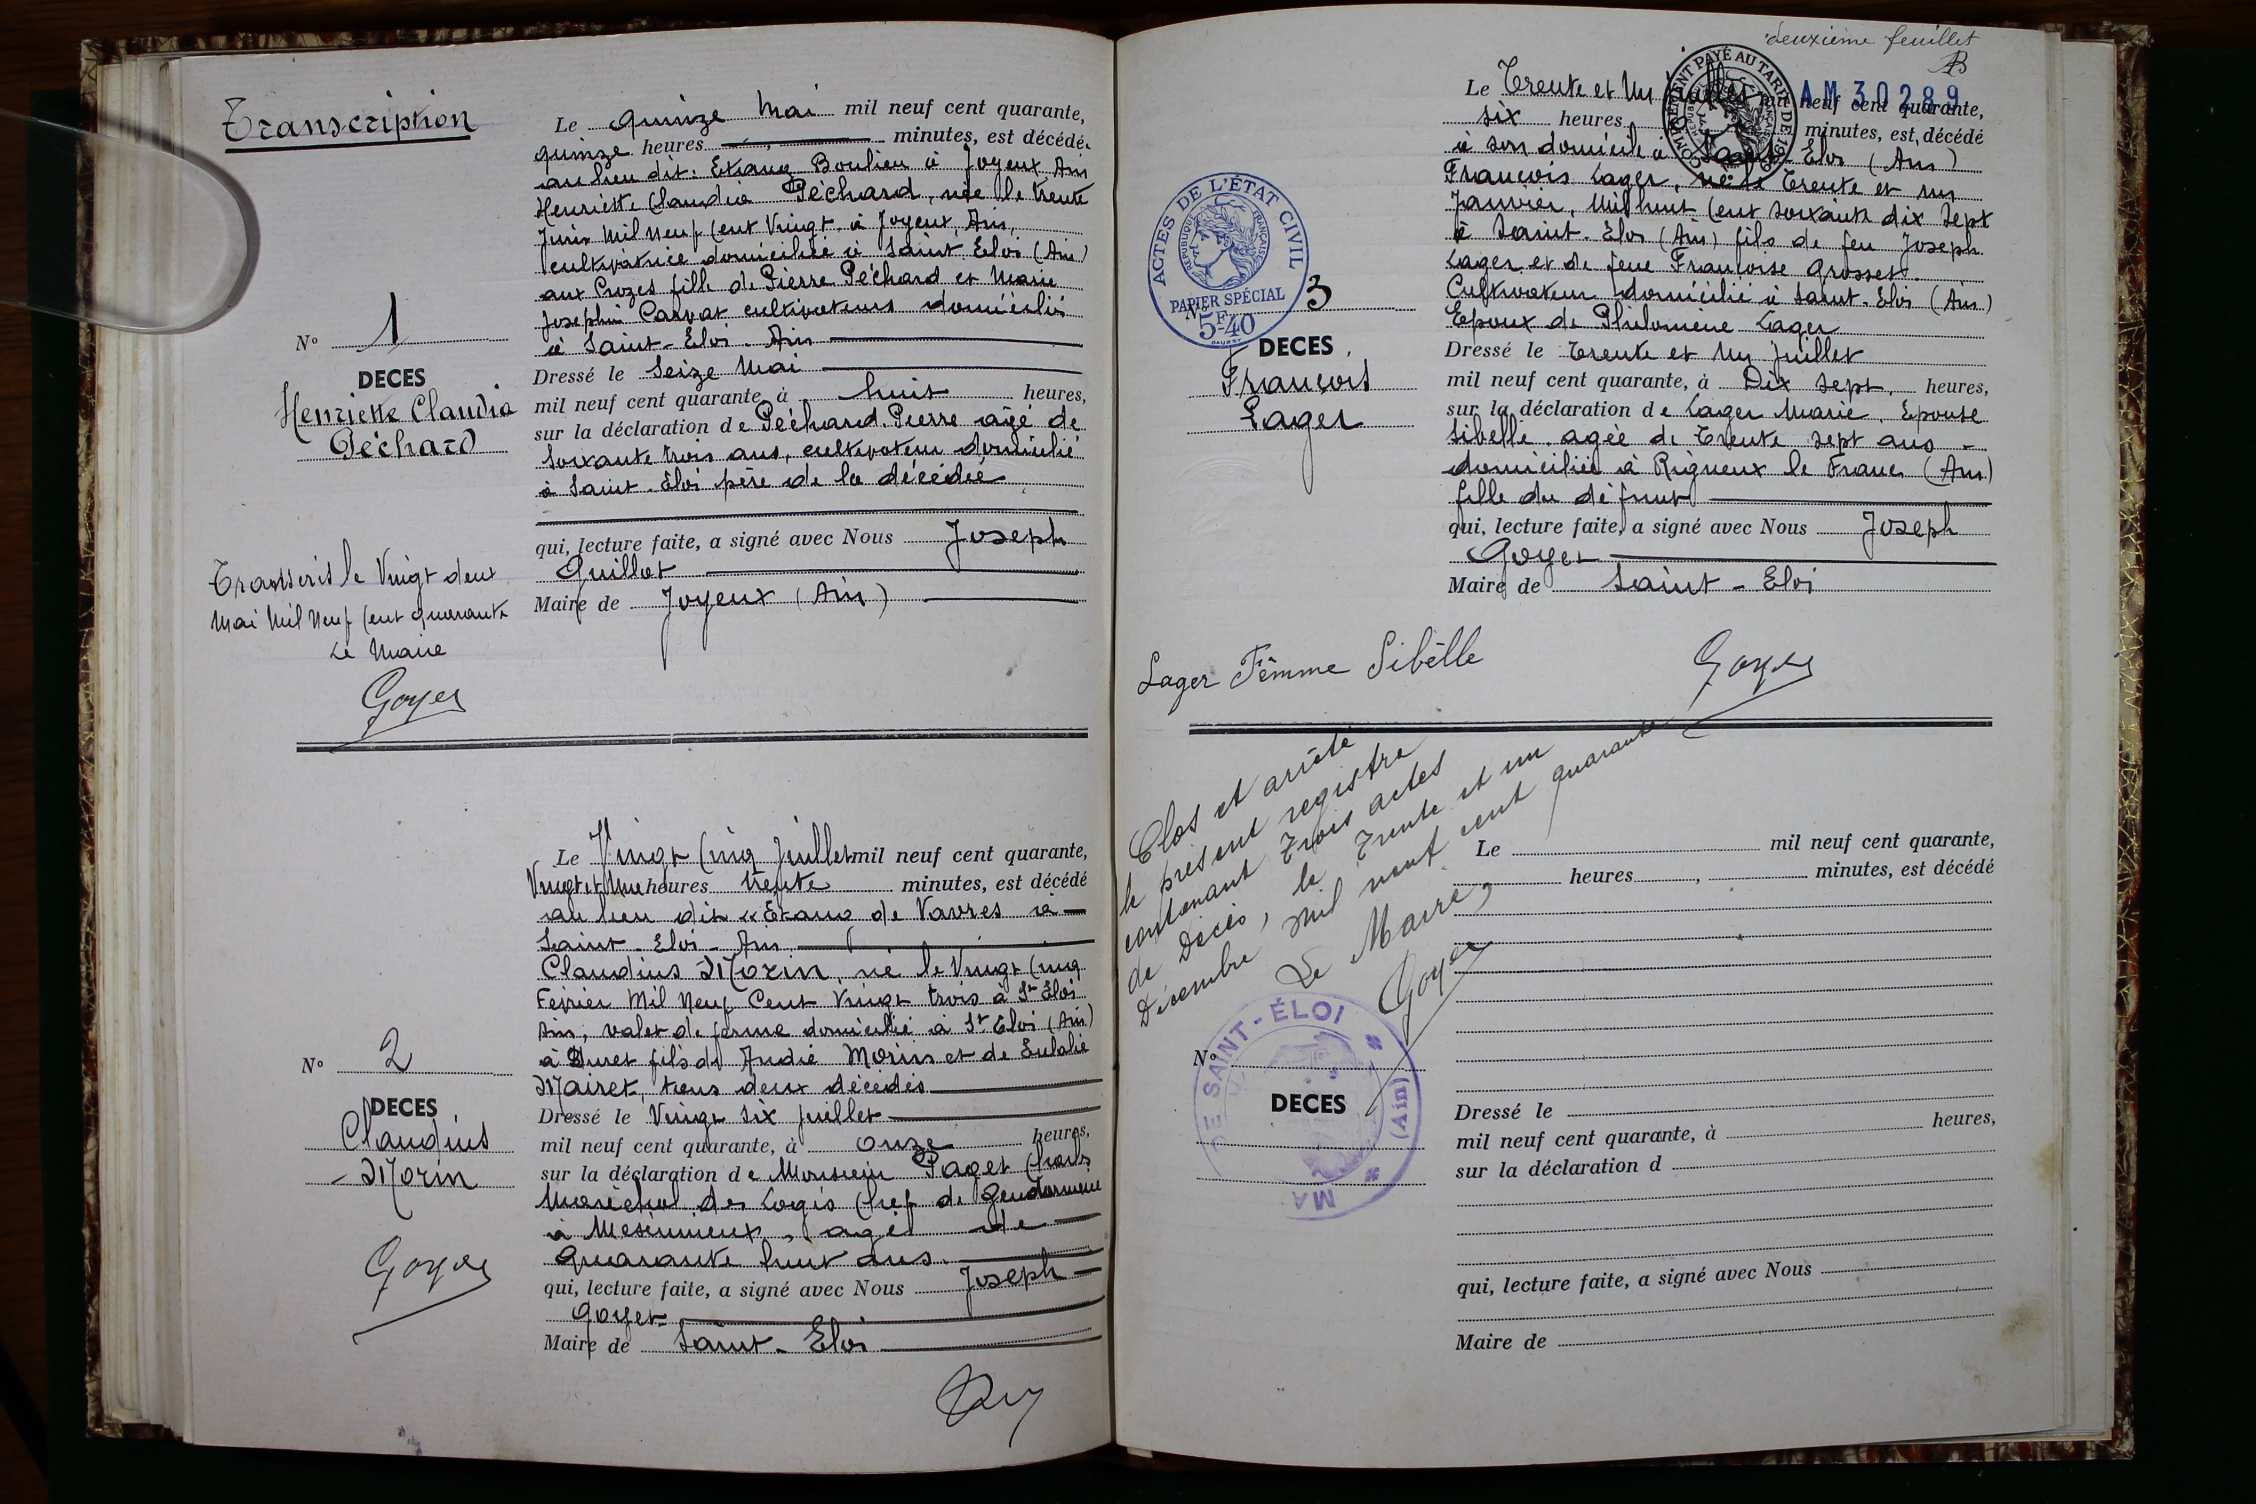 Transcription
Le quinze Mai mil neuf cent quarante,
quinze heures minutes, est décédée
au lieu dit. Etang Boulieu à Joyeux, Ain
Henriette Claudia Péchard, née le trente
Juin Mil Neuf Cent Vingt à Joyeux, Ain,
cultivatrice domiciliée à Saint Eloi (Ain)
aux Crozes fille de Pierre Péchard et Marie
Josephine Carvat cultivateurs domiciliés
à Saint-Eloi. Ain
Dressé le Seize Mai
mil neuf cent quarante, à huit heures,
sur la déclaration de Péchard Pierre agé de
soixante trois ans, cultivateur domicilié
à Saint-Eloi père de la décédée
qui, lecture faite, a signé avec Nous Joseph
Guillot
Maire de Joyeux (Ain)
N° 1
DECES
Henriette Claudia
Péchard
Transcris le Vingt deux
Mai Mil Neuf Cent quarante
Le Maire
Goyer
Le Vingt Cinq Juillet mil neuf cent quarante,
Vingt et Une heures trente minutes, est décédé
au lieu dit « Etang de Vavres à
Saint-Eloi-Ain
Claudius Morin, né le Vingt Cinq
Fevrier Mil Neuf Cent Vingt trois à St Eloi
Ain, valet de ferme domicilié à St Eloi (Ain)
à fils de André Morin et de Eulalie
Mairet, tous deux décédés
Dressé le Vingt six juillet
mil neuf cent quarante, à onze heures,
sur la déclaration de Monsieur Paget
Maréchal des Logis Chef de Gendarmerie
à Meximieux, agé de
quarante huit ans.
qui, lecture faite, a signé avec Nous Joseph
Goyer
Maire de Saint-Eloi
N° 2
DECES
Claudius
Morin
Goyer
deuxième feuillet
AM 30289
COMPLÉMENT PAYÉ AU TARIF DE
RÉPUBLIQUE FRANÇAISE
Le Trente et Un Juillet mil neuf cent quarante,
six heures minutes, est décédé
à son domicile à Saint Eloi (Ain)
François Lager, né le Trente et un
Janvier, Mil huit Cent soixante dix sept
à Saint-Eloi (Ain) fils de feu Joseph
Lager et de feue Françoise Grosset.
Cultivateur domicilié à Saint-Eloi (Ain)
Epoux de Philomène Lager
Dressé le trente et Un Juillet
mil neuf cent quarante, à Dix sept heures,
sur la déclaration de Lager Marie, Epouse
Sibelle agée de Trente sept ans
domiciliée à Rigneux le Franc (Ain)
fille du défunt
qui, lecture faite, a signé avec Nous Joseph
Goyer
Maire de Saint-Eloi
ACTES DE L'ÉTAT CIVIL
RÉPUBLIQUE FRANÇAISE
PAPIER SPÉCIAL
5F40
N° 3
DECES
François
Lager
Lager Fêmme Sibêlle
Goyer
Clos et arrêté
le présent registre
contenant trois actes
de Décès, le trente et un
Décembre mil neuf cent quarante
Le Maire,
Goyer
DE SAINT-ÉLOI
(Ain)
MA
N°
DECES
Le mil neuf cent quarante,
heures, minutes, est décédé
Dressé le
mil neuf cent quarante, à heures,
sur la déclaration d
qui, lecture faite, a signé avec Nous
Maire de